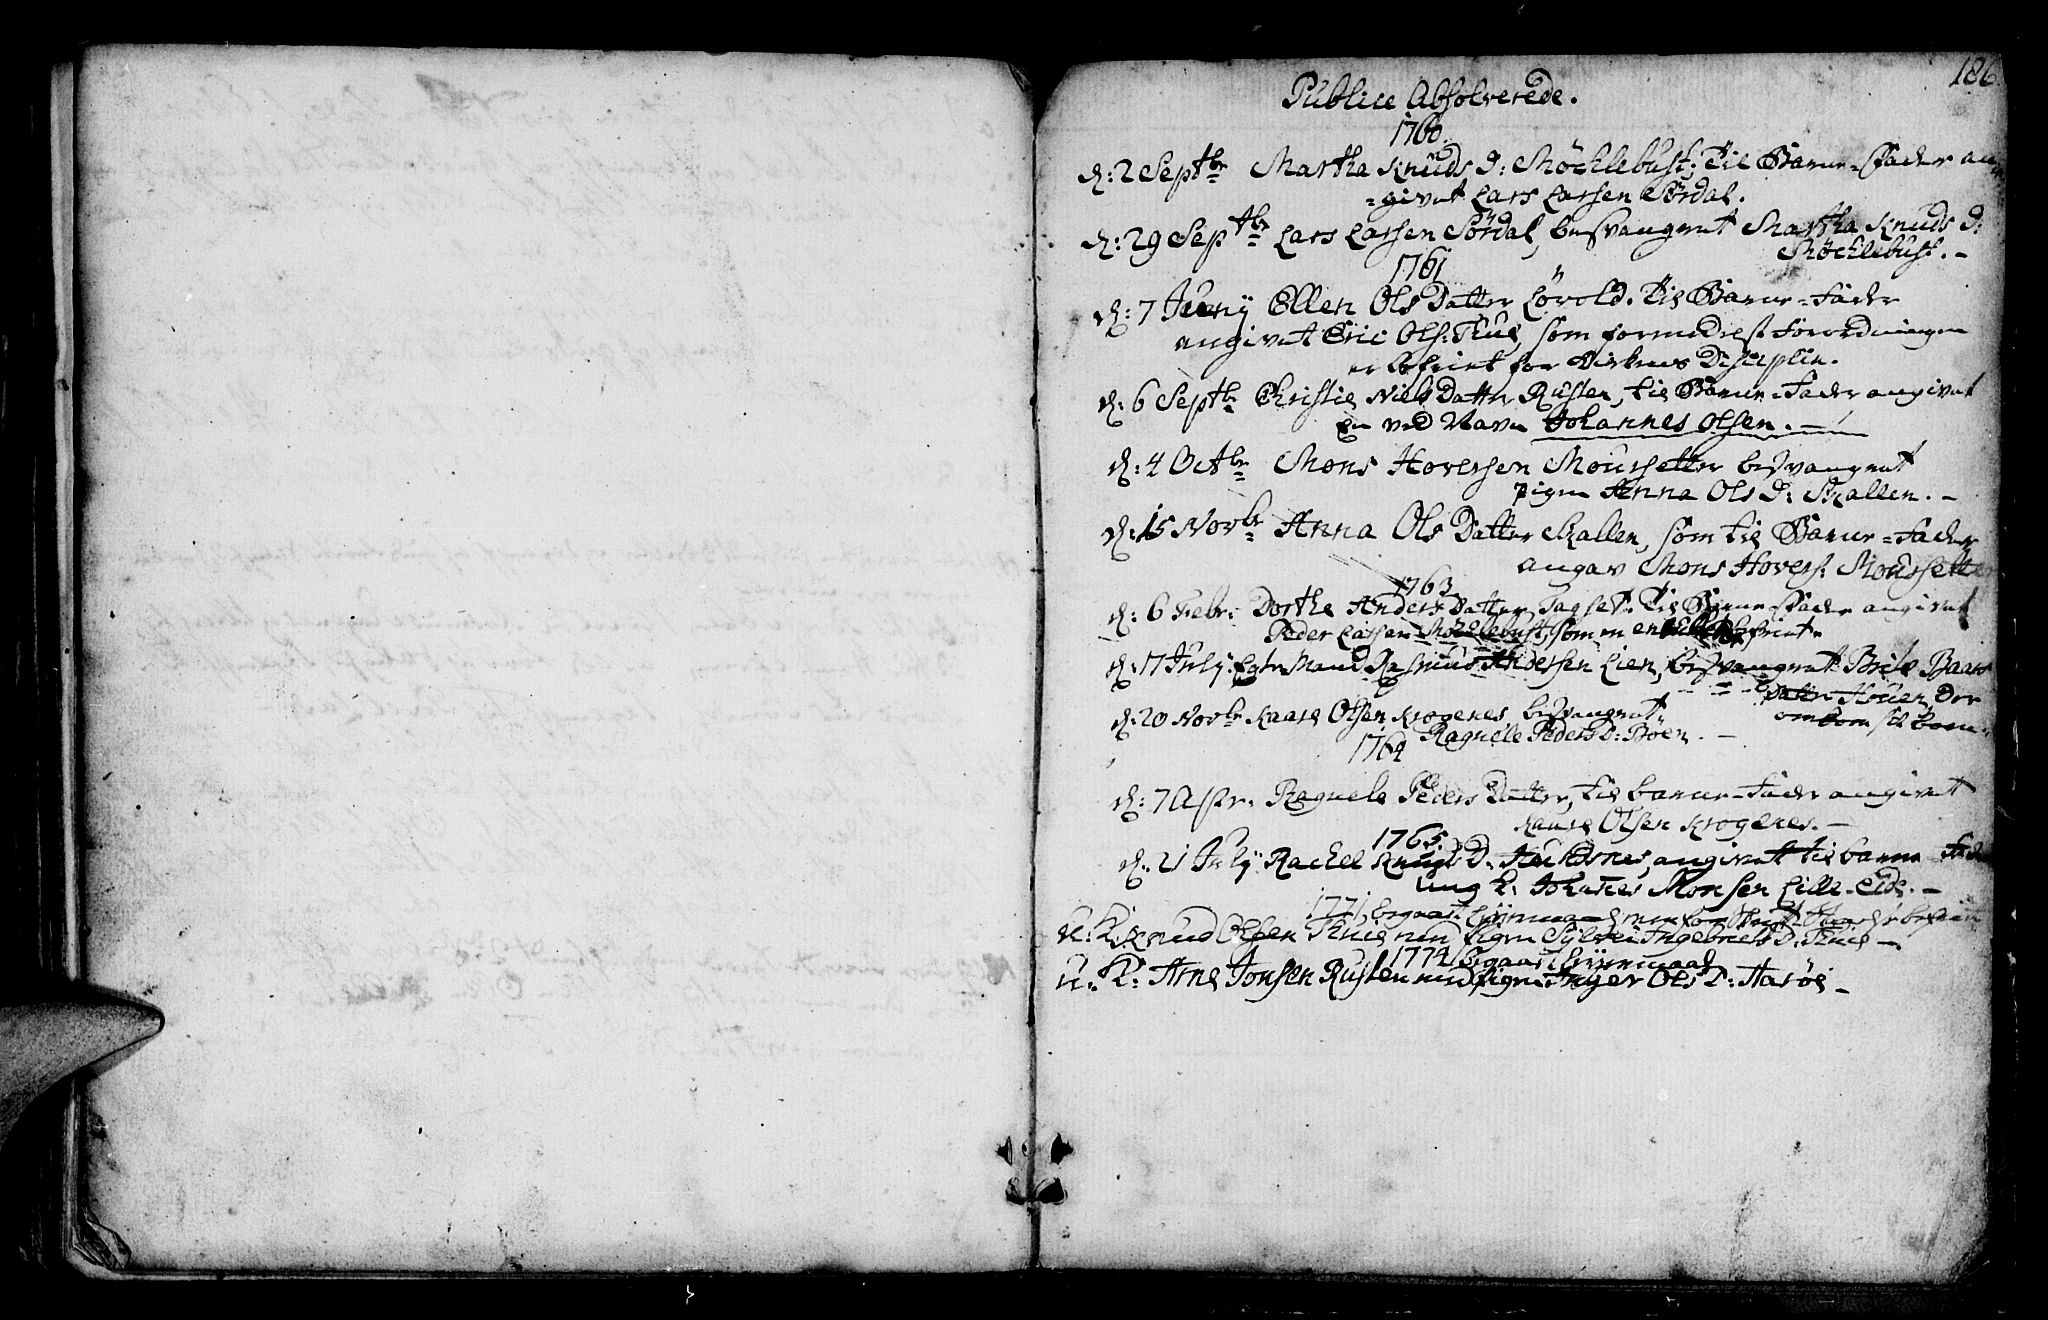 186
Publice Absolverede.
1760.
d: 2 Septbr Martha Knuds D: Möchlebust; Til Barne-Fader an-
=givet Lars Larsen Sördal.
d: 29 Septbr Lars Larsen Sördal, besvangret Martha Knuds D:
Möchlebust. -
1761
d: 7 Juny Ellen Ols Datter Lövold. Til Barne-Fader
angivet Eric Ols: Thue, som formedelst Forordningen
er befriet for Kirkens Disciplin.
d: 6 Septbr Christie Niels Datter Rusten, til Barne-Fader angivet
En ved Navn Johannes Olsen. -
d: 4 Octbr Mons Hoversen Moussetter besvangret
Pigen Anna Ols D: Skallen. -
d: 15 Novbr Anna Ols Datter Skallen, som til Barne-Fader
angav Mons Hovers: Moussetter
1763
d: 6 Febr: Dorthe Anders Datter Tagset. Til Barne-Fader angivet
Peder Larsen Möchlebust, som er befriet
d: 17 July Egte Mand Rasmus Andersen Lien, besvangret Brite Baars
Datter Houen, Der
d: 20 Novbr Kaare Olsen Krogenes, besvangret
Raguele Peders D: Böen. -
1764
d: 7 Apr: Raguele Peders Datter, til barne-Fader angivet
Kaare Olsen Krogenes. -
1765.
d. 21 July Rachel Knuds D. Haudsnes, angivet til barne Fader
ung K: Johanes Monsen Lille-Eide. -
1771, begaaet Leiermaal
U: K: Knud Olsen Thue med Pigen Sylvei Ingebrets D: Thue -
1774 begaaet Leiermaal
U: K: Arne Jonsen Rusten med Pigen Inger Ols D: Aaröe -